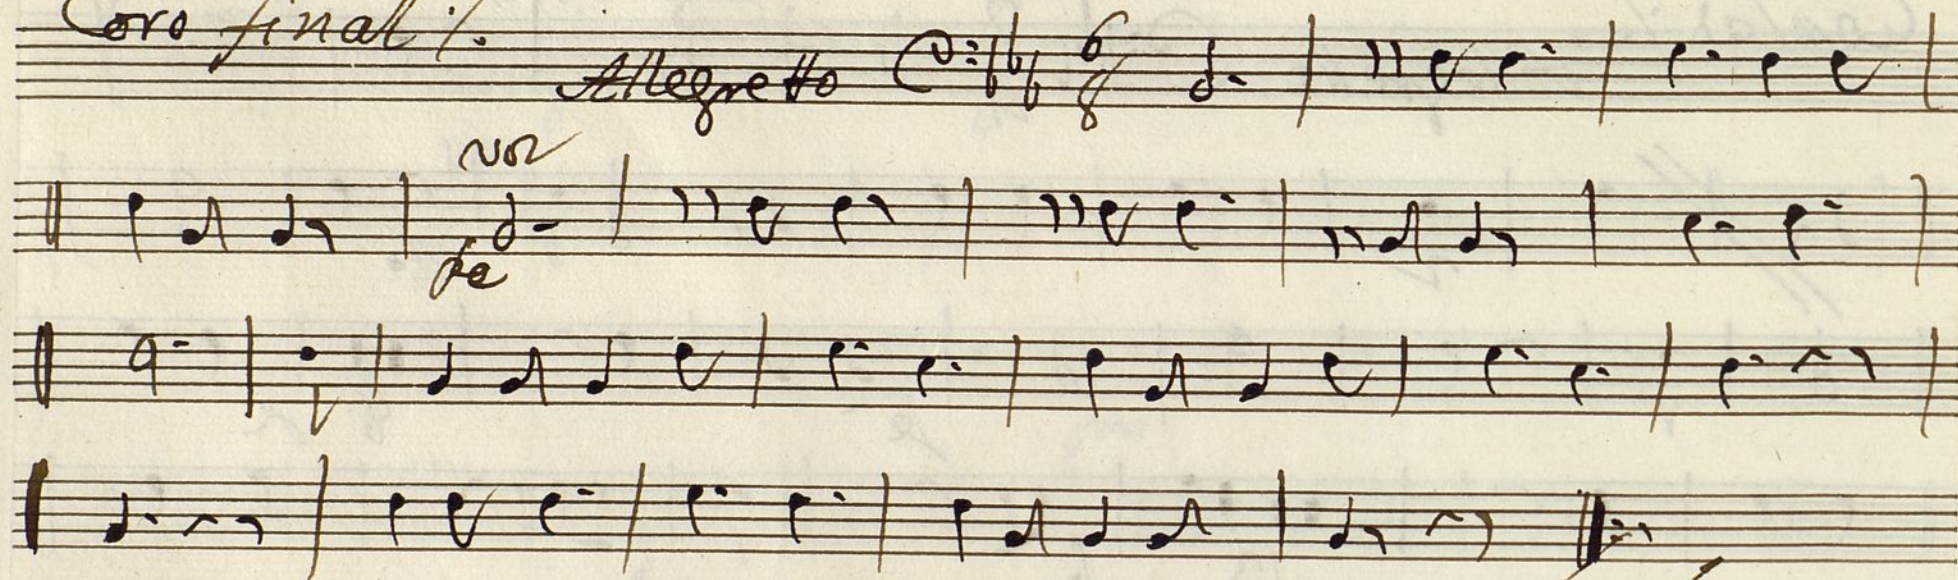 Coro final
Allegretto 6
8
voz
pe